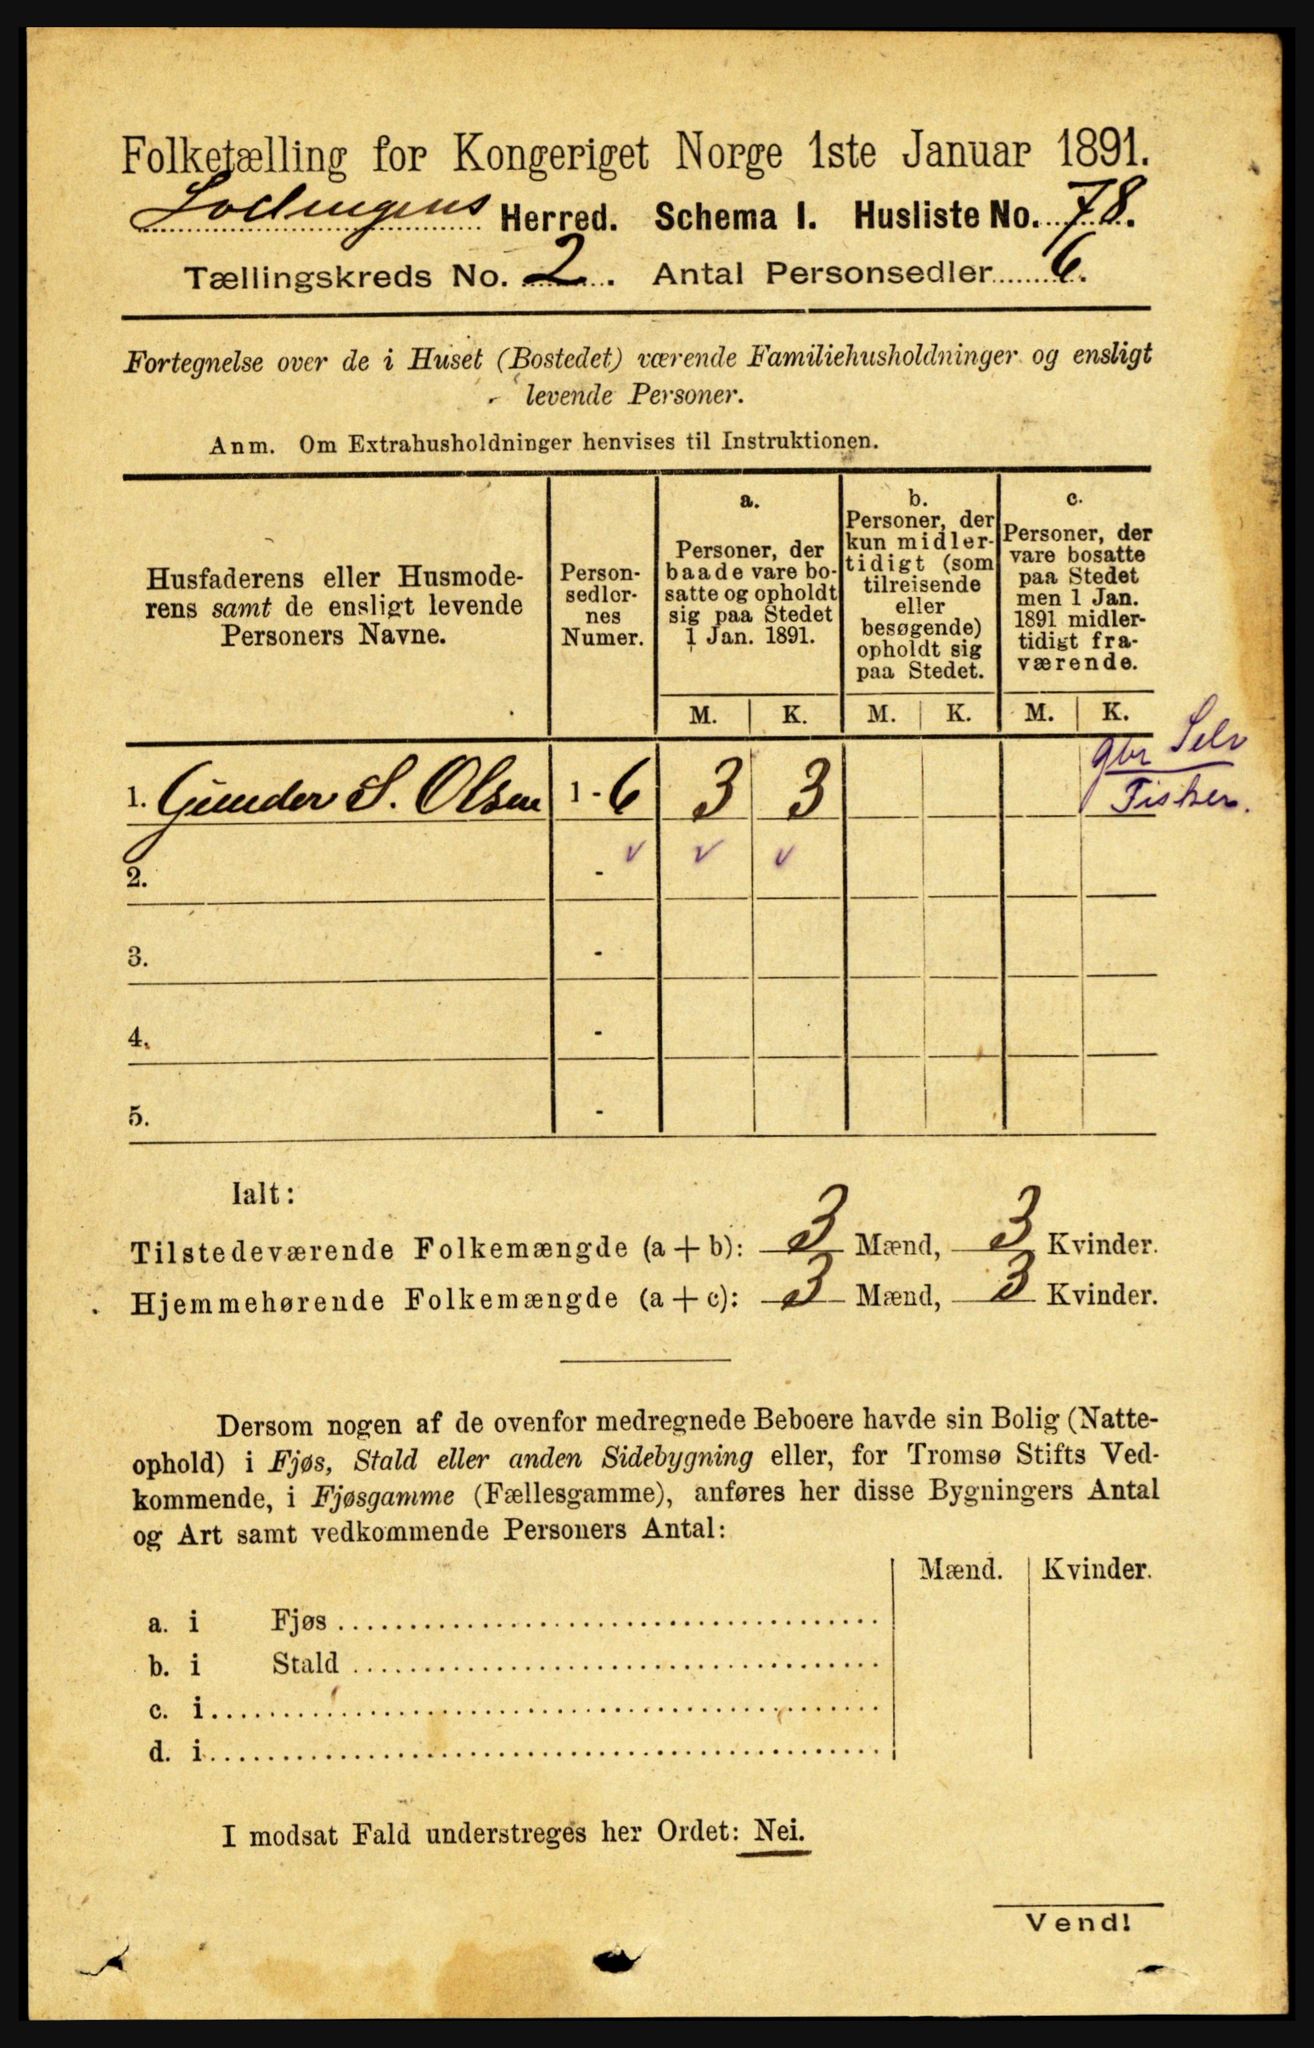 Folketælling for Kongeriget Norge 1ste Januar 1891.
Lodingens Herred. Schema I. Husliste No. 78.
Tællingskreds No. 2. Antal Personsedler 6.
Fortegnelse over de i Huset (Bostedet) værende Familiehusholdninger og ensligt
levende Personer.
Anm. Om Extrahusholdninger henvises til Instruktionen.
Husfaderens eller Husmode-
rens samt de ensligt levende
Personers Navne.
Person-
sedler-
nes
Numer.
a.
Personer, der
baade vare bo-
satte og opholdt
sig paa Stedet
1 Jan. 1891.
b.
Personer, der
kun midler-
tidigt (som
tilreisende
eller
besøgende)
opholdt sig
paa Stedet.
c.
Personer, der
vare bosatte
paa Stedet
men 1 Jan.
1891 midler-
tidigt fra-
værende.
M. K. M. K. M. K.
gbr Selv
Fisker.
1. Gunder S. Olsen 1 - 6 3 3
2. - v v v
3. -
4. -
5. -
Ialt:
Tilstedeværende Folkemængde (a + b): 3 Mænd, 3 Kvinder.
Hjemmehørende Folkemængde (a + c): 3 Mænd, 3 Kvinder.
Dersom nogen af de ovenfor medregnede Beboere havde sin Bolig (Natte-
ophold) i Fjøs, Stald eller anden Sidebygning eller, for Tromsø Stifts Ved-
kommende, i Fjøsgamme (Fællesgamme), anføres her disse Bygningers Antal
og Art samt vedkommende Personers Antal:
Mænd. Kvinder.
a. i Fjøs
b. i Stald
c. i
d. i
I modsat Fald understreges her Ordet: Nei.
Vend!